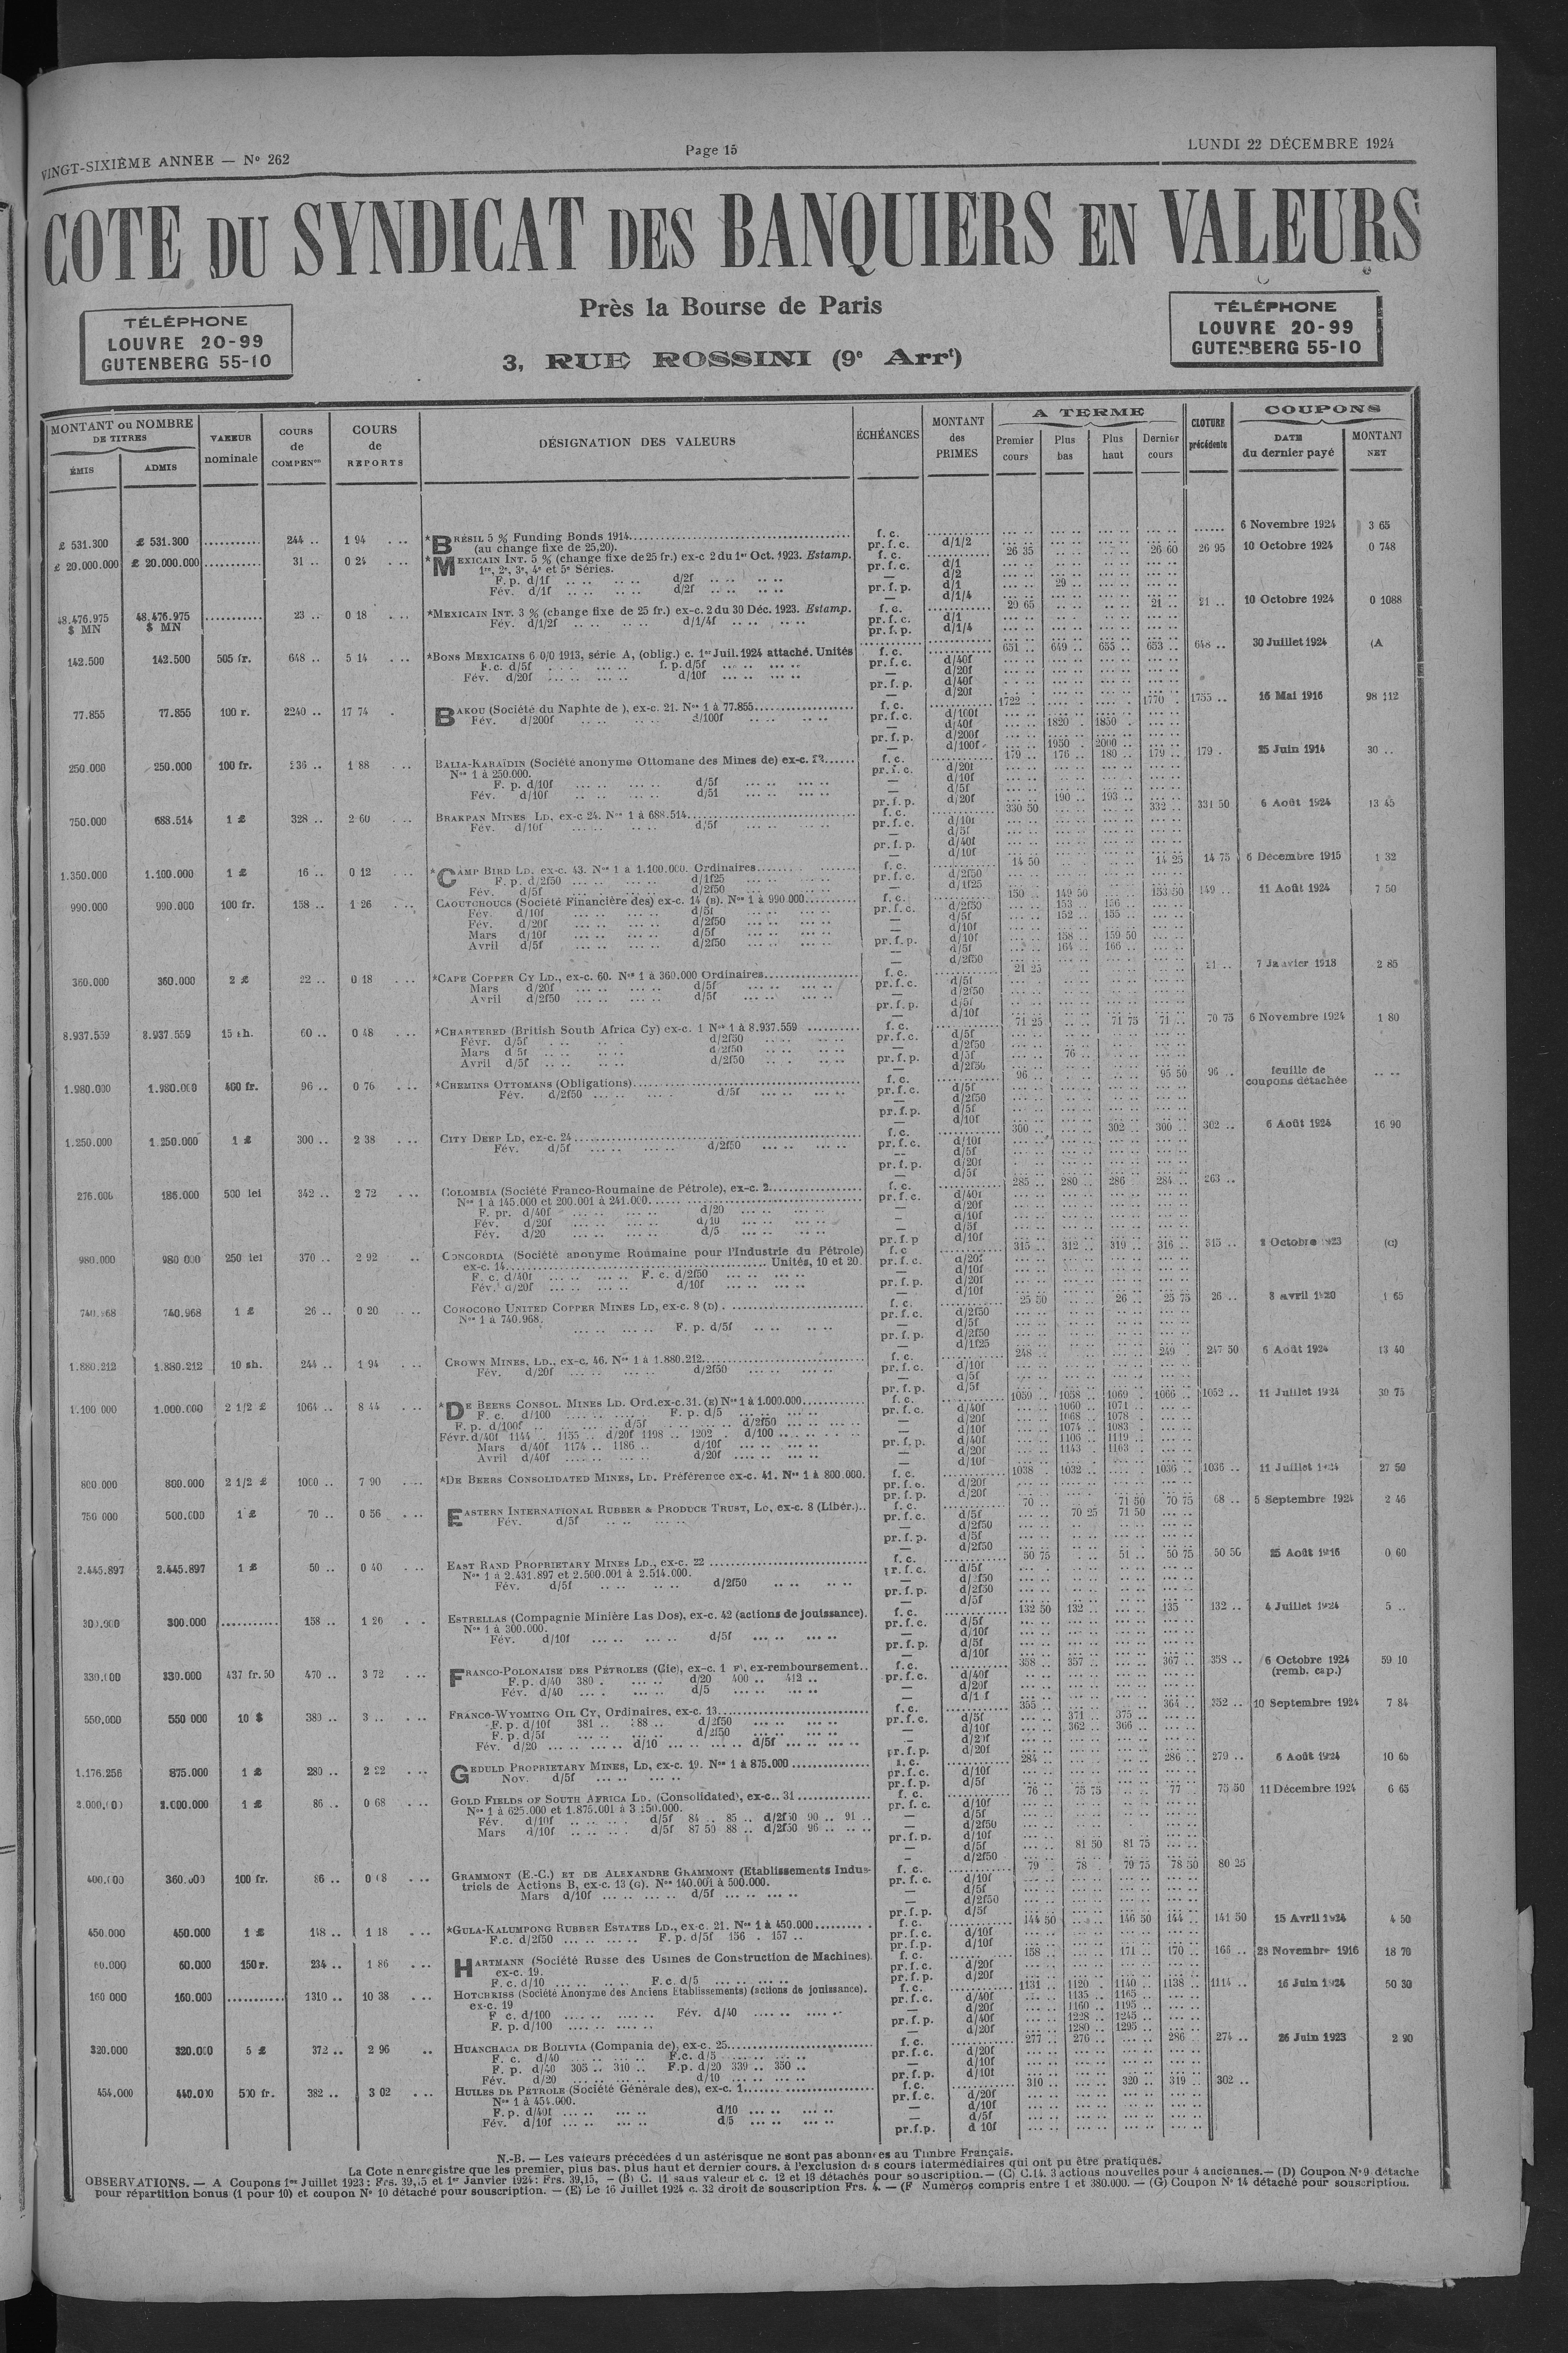 VINGT-SIXIÈME ANNEE — No 262
Page 15
LUNDI 22 DÉCEMBRE 1924
COTE DU SYNDICAT DES BANQUIERS EN VALEURS
Près la Bourse de Paris
3, RUE ROSSINI (9e Arrt)
TÉLÉPHONE
LOUVRE 20-99
GUTENBERG 55-10
TÉLÉPHONE
LOUVRE 20-99
GUTENBERG 55-10
MONTANT ou NOMBRE DE TITRES
ÉMIS
ADMIS
VALEUR nominale
COURS de COMPENon
COURS de REPORTS
DÉSIGNATION DES VALEURS
ÉCHÉANCES
MONTANT des PRIMES
A TERME
Premier cours
Plus bas
Plus haut
Dernier cours
CLOTURE précédente
COUPONS
DATE du dernier payé
MONTANT NET
£ 531.300 £ 531.300 244 .. 1 94 *BRÉSIL 5 % Funding Bonds 1914 f. c. 6 Novembre 1924 3 65
(au change fixe de 25,20). pr. f. c. d/1/2
£ 20.000.000 £ 20.000.000 31 .. 0 24 *MEXICAIN INT. 5 % (change fixe de 25 fr.) ex-c 2 du 1er Oct. 1923. Estamp. f. c. 26 35 26 60 26 95 10 Octobre 1924 0 748
1re, 2e, 3e, 4e et 5e Séries. pr. f. c. d/1
F. p. d/1f d/2f — d/2
Fév. d/1f d/2f pr. f. p. d/1 29 ..
— d/1/4
48.476.975 $ MN 48.476.975 $ MN 23 .. 0 18 *MEXICAIN INT. 3 % (change fixe de 25 fr.) ex-c. 2 du 30 Déc. 1923. Estamp. f. c. 20 65 21 .. 21 .. 10 Octobre 1924 0 1088
Fév. d/1/2f d/1/4f pr. f. c. d/1
pr. f. p. d/1/4
142.500 142.500 505 fr. 648 .. 5 14 *BONS MEXICAINS 6 0/0 1913, série A, (oblig.) c. 1er Juil. 1924 attaché. Unités f. c. 651 .. 649 .. 655 .. 653 .. 648 .. 30 Juillet 1924 (A
F.c. d/5f f. p. d/5f pr. f. c. d/40f
Fév. d/20f d/10f — d/20f
pr. f. p. d/40f
— d/20f
77.855 77.855 100 r. 2240 .. 17 74 BAKOU (Société du Naphte de ), ex-c. 21. Nos 1 à 77.855 f. c. 1722 .. 1770 . 1755 .. 16 Mai 1916 98 112
Fév. d/200f d/100f pr. f. c. d/100f
— d/40f 1820 . 1850 .
pr. f. p. d/200f
— d/100f 1950 . 2000 ..
250.000 250.000 100 fr. 236 .. 1 88 BALIA-KARAÏDIN (Société anonyme Ottomane des Mines de) ex-c. f. c. 179 .. 176 .. 180 .. 179 .. 179 . 25 Juin 1914 30 ..
Nos 1 à 250.000. pr. f. c. d/20f
F. p. d/10f d/5f — d/10f
Fév. d/10f d/51 — d/5f
pr. f. p. d/20f 190 .. 193 ..
750.000 688.514 1 £ 328 .. 2 60 BRAKPAN MINES LD, ex-c 24. Nos 1 à 688.514 f. c. 330 50 332 .. 331 50 6 Août 1924 13 45
Fév. d/10f d/5f pr. f. c. d/10f
— d/5f
pr. f. p. d/40f
— d/10f
1.350.000 1.100.000 1 £ 16 .. 0 12 *CAMP BIRD LD. ex-c. 43. Nos 1 à 1.100.000. Ordinaires f. c. 14 50 14 25 14 75 6 Décembre 1915 1 32
F. p. d/2f50 d/1f25 pr. f. c. d/2f50
Fév. d/5f d/2f50 — d/1f25
990.000 990.000 100 fr. 158 .. 1 26 CAOUTCHOUCS (Société Financière des) ex-c. 14 (B). Nos 1 à 990 000 f. c. 150 .. 149 50 153 50 149 .. 11 Août 1924 7 50
Fév. d/10f d/5f pr. f. c. d/2f50 153 .. 156 ..
Fév. d/20f d/2f50 — d/5f 152 .. 155 ..
Mars d/10f d/5f — d/10f
Avril d/5f d/2f50 pr. f. p. d/10f 158 .. 159 50
— d/5f 164 .. 166 ..
— d/2f50
360.000 360.000 2 £ 22 .. 0 18 *CAPE COPPER CY LD., ex-c. 60. Nos 1 à 360.000 Ordinaires f. c. 21 25 21 .. 7 Janvier 1918 2 85
Mars d/20f d/5f pr. f. c. d/5f
Avril d/2f50 d/5f — d/2f50
pr. f. p. d/5f
— d/10f
8.937.559 8.937.559 15 sh. 60 .. 0 48 *CHARTERED (British South Africa Cy) ex-c. 1 Nos 1 à 8.937.559 f. c. 71 25 71 75 71 .. 70 75 6 Novembre 1924 1 80
Févr. d/5f d/2f50 pr. f. c. d/5f
Mars d 5f d/2f50 — d/2f50
Avril d/5f d/2f50 pr. f. p. d/5f 76 ..
— d/2f50
1.980.000 1.980.000 400 fr. 96 .. 0 76 *CHEMINS OTTOMANS (Obligations) f. c. 96 .. 95 50 96 .. feuille de coupons détachée
Fév. d/2f50 d/5f pr. f. c. d/5f
— d/2f50
pr. f. p. d/5f
— d/10f
1.250.000 1.250.000 1 £ 300 .. 2 38 CITY DEEP LD, ex-c. 24 f. c. 300 .. 302 .. 300 .. 302 .. 6 Août 1924 16 90
Fév. d/5f d/2f50 pr. f. c. d/10f
— d/5f
pr. f. p. d/20f
— d/5f
276.000 186.000 500 lei 342 .. 2 72 COLOMBIA (Société Franco-Roumaine de Pétrole), ex-c. 2 f. c. 285 .. 280 .. 286 .. 284 .. 263 ..
Nos 1 à 145.000 et 200.001 à 241.000 pr. f. c. d/40f
F. pr. d/40f d/20 — d/20f
Fév. d/20f d/10 — d/10f
Fév. d/20 d/5 — d/5f
pr. f. p d/10f
980.000 980 000 250 lei 370 .. 2 92 CONCORDIA (Société anonyme Roumaine pour l'Industrie du Pétrole) f. c 315 .. 312 .. 319 .. 316 .. 315 .. Octobre 1923 (C)
ex-c. 14 Unités, 10 et 20. pr. f. c. d/20f
F. c. d/40f F. c. d/2f50 — d/10f
Fév. d/20f d/10f pr. f. p. d/20f
— d/10f
740.968 740.968 1 £ 26 .. 0 20 COROCORO UNITED COPPER MINES LD, ex-c. 8 (D) . f. c. 25 50 26 .. 25 75 26 .. 8 avril 1920 1 65
Nos 1 à 740.968. pr. f. c. d/2f50
F. p. d/5f — d/5f
pr. f. p. d/2f50
— d/1f25
1.880.212 1.880.212 10 sh. 244 .. 1 94 CROWN MINES, LD., ex-c. 46. Nos 1 à 1.880.212 f. c. 248 .. 249 .. 247 50 6 Août 1924 13 40
Fév. d/20f d/2f50 pr. f. c. d/10f
— d/5f
pr. f. p. d/5f
1.100 000 1.000.000 2 1/2 £ 1064 .. 8 44 *DE BEERS CONSOL. MINES LD. Ord.ex-c.31. (E) Nos 1 à 1.000.000 f. c. 1059 .. 1058 .. 1069 .. 1066 .. 1052 .. 11 Juillet 1924 30 75
F. c. d/100 F. p. d/5 pr. f. c. d/40f 1060 .. 1071 ..
F. p. d/100f d/5f d/2f50 — d/20f 1068 .. 1078 .
Févr. d/40f 1144 .. 1155 .. d/20f 1198 .. 1202 . d/100 — d/10f 1074 .. 1083 .
Mars d/40f 1174 .. 1186 .. d/10f pr. f. p. d/40f 1106 .. 1119 ..
Avril d/40f d/20f — d/20f 1143 . 1163 ..
— d/10f
800.000 800.000 2 1/2 £ 1000 .. 7 90 *DE BEERS CONSOLIDATED MINES, LD. Préférence ex-c. 41. Nos 1 à 800.000. f. c. 1038 . 1032 .. 1036 .. 1036 .. 11 Juillet 1924 27 50
pr. f. c. d/20f
pr. f. p. d/20f
750 000 500.000 1 £ 70 .. 0 56 EASTERN INTERNATIONAL RUBBER & PRODUCE TRUST, LD, ex-c. 8 (Libér.).. f. c. 70 .. 71 50 70 75 68 .. 5 Septembre 1924 2 46
Fév. d/5f pr. f. c. d/5f 70 25 71 50
— d/2f50
pr. f. p. d/5f
— d/2f50
2.445.897 2.445.897 1 £ 50 .. 0 40 EAST RAND PROPRIETARY MINES LD., ex-c. 22 f. c. 50 75 51 .. 50 75 50 50 25 Août 1916 0 60
Nos 1 à 2.431.897 et 2.500.001 à 2.514.000. pr. f. c. d/5f
Fév. d/5f d/2f50 — d/2f50
pr. f. p. d/2f50
— d/5f
300.000 300.000 158 .. 1 26 ESTRELLAS (Compagnie Minière Las Dos), ex-c. 42 (actions de jouissance). f. c. 132 50 132 .. 135 132 .. 4 Juillet 1924 5 ..
Nos 1 à 300.000. pr. f. c. d/5f
Fév. d/10f d/5f — d/10f
pr. f. p. d/5f
— d/10f
330.000 330.000 437 fr. 50 470 .. 3 72 FRANCO-POLONAISE DES PÉTROLES (Cie), ex-c. 1 F), ex-remboursement.. f. c. 358 .. 357 .. 367 .. 358 .. 6 Octobre 1924 (remb. cap.) 59 10
F.p. d/40 380 . d/20 400 .. 412 .. pr. f. c. d/40f
Fév. d/40 d/5 — d/20f
— d/1 f
550.000 550 000 10 $ 380 .. 3 .. FRANCO-WYOMING OIL CY, Ordinaires, ex-c. 13 f. c. 355 .. 364 .. 352 .. 10 Septembre 1924 7 84
F. p. d/10f 381 .. 388 .. d/2f50 pr. f. c. d/5f 371 .. 375 ..
F. p. d/5f d/2f50 — d/10f 362 .. 366 ..
Fév. d/20 d/10 d/5f — d/20f
pr. f. p. d/20f
1.176.256 875.000 1 £ 280 .. 2 22 GEDULD PROPRIETARY MINES, LD, ex-c. 19. Nos 1 à 875.000 f. c. 284 .. 286 .. 279 .. 6 Août 1924 10 65
Nov. d/5f pr. f. c. d/10f
pr. f. p. d/5f
1 £ 86 .. 0 68 GOLD FIELDS OF SOUTH AFRICA LD. (Consolidated), ex-c.. 31 f. c. 76 75 75 77 .. 75 50 11 Décembre 1924 6 65
Nos 1 à 625.000 et 1.875.001 à 3 250.000. pr. f. c. d/10f
Fév. d/10f d/5f 84 .. 85 .. d/2f50 90 .. 91 .. — d/5f
Mars d/10f d/5f 87 50 88 .. d/2f50 96 .. — d/2f50
pr. f. p. d/10f
— d/5f 81 50 81 75
— d/2f50
400.000 360.000 100 fr. 86 .. 0 68 GRAMMONT (E.-C.) ET DE ALEXANDRE GRAMMONT (Etablissements Indus- f. c. 79 .. 78 . 79 75 78 50 80 25
triels de Actions B, ex-c. 13 (G). Nos 140.001 à 500.000. pr. f. c. d/10f
Mars d/10f d/5f — d/5f
— d/2f50
pr. f. p. d/5f
450.000 450.000 1 £ 148 .. 1 18 *GULA-KALUMPONG RUBBER ESTATES LD., ex-c. 21. Nos 1 à 450.000 f. c. 144 50 146 50 144 .. 141 50 15 Avril 1924 4 50
F.c. d/2f50 F. p. d/5f 156 . 157 .. pr. f. c. d/10f
pr. f.p. d/10f
60.000 60.000 150 r. 234 .. 1 86 HARTMANN (Société Russe des Usines de Construction de Machines). f. c. 158 .. 171 .. 170 .. 166 .. 28 Novembre 1916 18 70
ex-c. 19. pr. f. c. d/20f
F. c. d/10 F. c. d/5 pr. f. p. d/20f
160 000 160.000 1310 .. 10 38 HOTCHKISS (Société Anonyme des Anciens Etablissements) (actions de jouissance). f. c. 1131 .. 1120 .. 1140 .. 1138 .. 1114 .. 16 Juin 1924 50 30
ex-c. 19 pr. f. c. d/40f 1135 .. 1165 ..
F c. d/100 Fév. d/40 — d/20f 1160 .. 1195 ..
F. p. d/100 pr. f. p. d/40f 1228 .. 1245 ..
— d/20f 1280 .. 1295 ..
320.000 320.000 5 £ 372 .. 2 96 HUANCHACA DE BOLIVIA (Compania de), ex-c. 25 f. c. 277 .. 276 .. 286 .. 274 .. 26 Juin 1923 2 90
F. c. d/40 F.c. d/5 pr. f. c. d/20f
F. p. d/40 305 .. 310 .. F.p. d/20 339 .. 350 .. — d/10f
Fév. d/20 d/10 pr. f. p. d/10f
454.000 440.000 500 fr. 382 .. 3 02 HUILES DE PÉTROLE (Société Générale des), ex-c. 1 f. c. 310 .. 320 .. 319 .. 302 ..
Nos 1 à 454.000. pr. f. c. d/20f
F. p. d/40f d/10 — d/10f
Fév. d/10f d/5 — d/5f
pr.f.p. d 10f
N.-B. — Les valeurs précédées d un astérisque ne sont pas abonnées au Timbre Français.
La Cote n enregistre que les premier, plus bas, plus haut et dernier cours, à l'exclusion des cours intermédiaires qui ont pu être pratiqués.
OBSERVATIONS. — A Coupons 1er Juillet 1923 : Frs. 39,15 et 1er Janvier 1924 : Frs. 39,15. — (B) C. 11 sans valeur et c. 12 et 13 détachés pour souscription. — (C) C.14. 3 actions nouvelles pour 4 anciennes. — (D) Coupon No 9 détaché
pour répartition bonus (1 pour 10) et coupon No 10 détaché pour souscription. — (E) Le 16 Juillet 1924 c. 32 droit de souscription Frs. 4. — (F Numéros compris entre 1 et 380.000. — (G) Coupon No 14 détaché pour souscription.